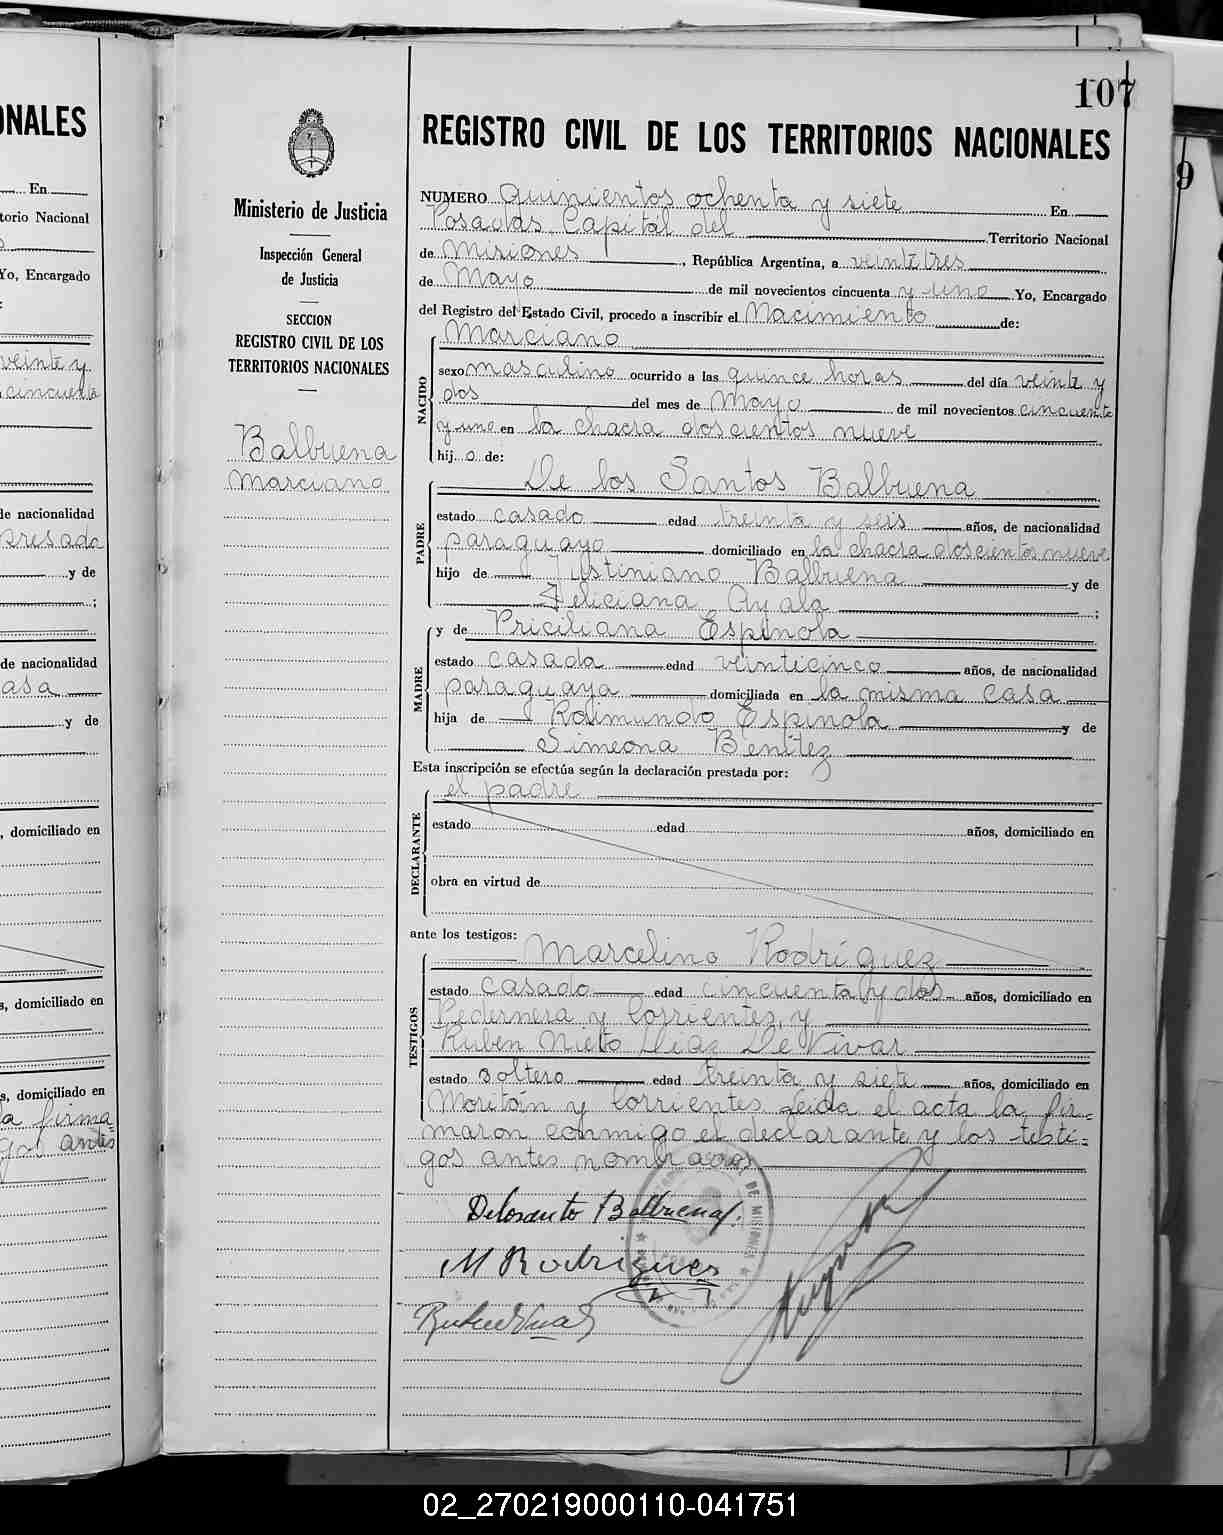 107
REGISTRO CIVIL DE LOS TERRITORIOS NACIONALES
Ministerio de Justicia
Inspección General
de Justicia
SECCION
REGISTRO CIVIL DE LOS
TERRITORIOS NACIONALES
Balbuena
Marciano
NUMERO Quinientos ochenta y siete En
Posadas Capital del Territorio Nacional
de Misiones, República Argentina, a veintitres
de Mayo de mil novecientos cincuenta y uno Yo, Encargado
del Registro del Estado Civil, procedo a inscribir el Nacimiento de:
Marciano
NACIDO
sexo masculino ocurrido a las quince horas del día veinte y
dos del mes de Mayo de mil novecientos cincuenta
y uno en la chacra doscientos nueve
hijo de:
De los Santos Balbuena
PADRE
estado casado edad treinta y seis años, de nacionalidad
paraguayo domiciliado en la chacra doscientos nueve
hijo de Justiniano Balbuena y de
Feliciana Ayala ;
y de Priciliana Espinola
MADRE
estado casada edad veinticinco años, de nacionalidad
paraguaya domiciliada en la misma casa
hija de Raimundo Espinola y de
Simeona Benitez
Esta inscripción se efectúa según la declaración prestada por:
el padre
DECLARANTE
estado edad años, domiciliado en
obra en virtud de
ante los testigos:
Marcelino Rodríguez
TESTIGOS
estado casado edad cincuenta y dos años, domiciliado en
Pedernera y Corrientes, y
Ruben Nieto Diaz De Vivar
estado soltero edad treinta y siete años, domiciliado en
Moritán y Corrientes Leida el acta la fir=
maron conmigo el declarante y los testi=
gos antes nombrados
Delosanto Balbuena.
M Rodrigues
DE MISIONES
ONALES
En
torio Nacional
Yo, Encargado
veinte y
cincuenta
de nacionalidad
y de
;
de nacionalidad
casa
y de
, domiciliado en
s, domiciliado en
s, domiciliado en
la firma=
antes
9
02_270219000110-041751